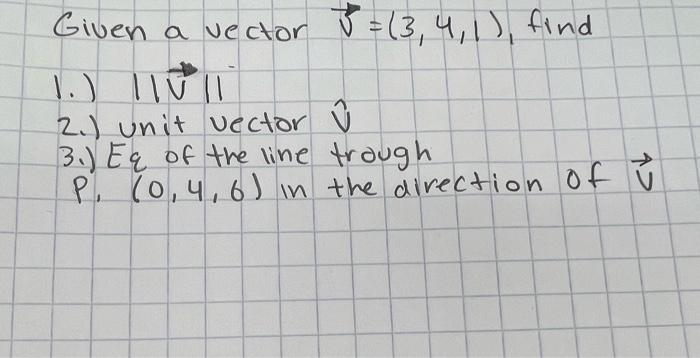 Given a vector v⃗ = (3, 4, 1), find
1.) ||v⃗||
2.) unit vector v̂
3.) Eq of the line trough
P. (0, 4, 6) in the direction of v⃗